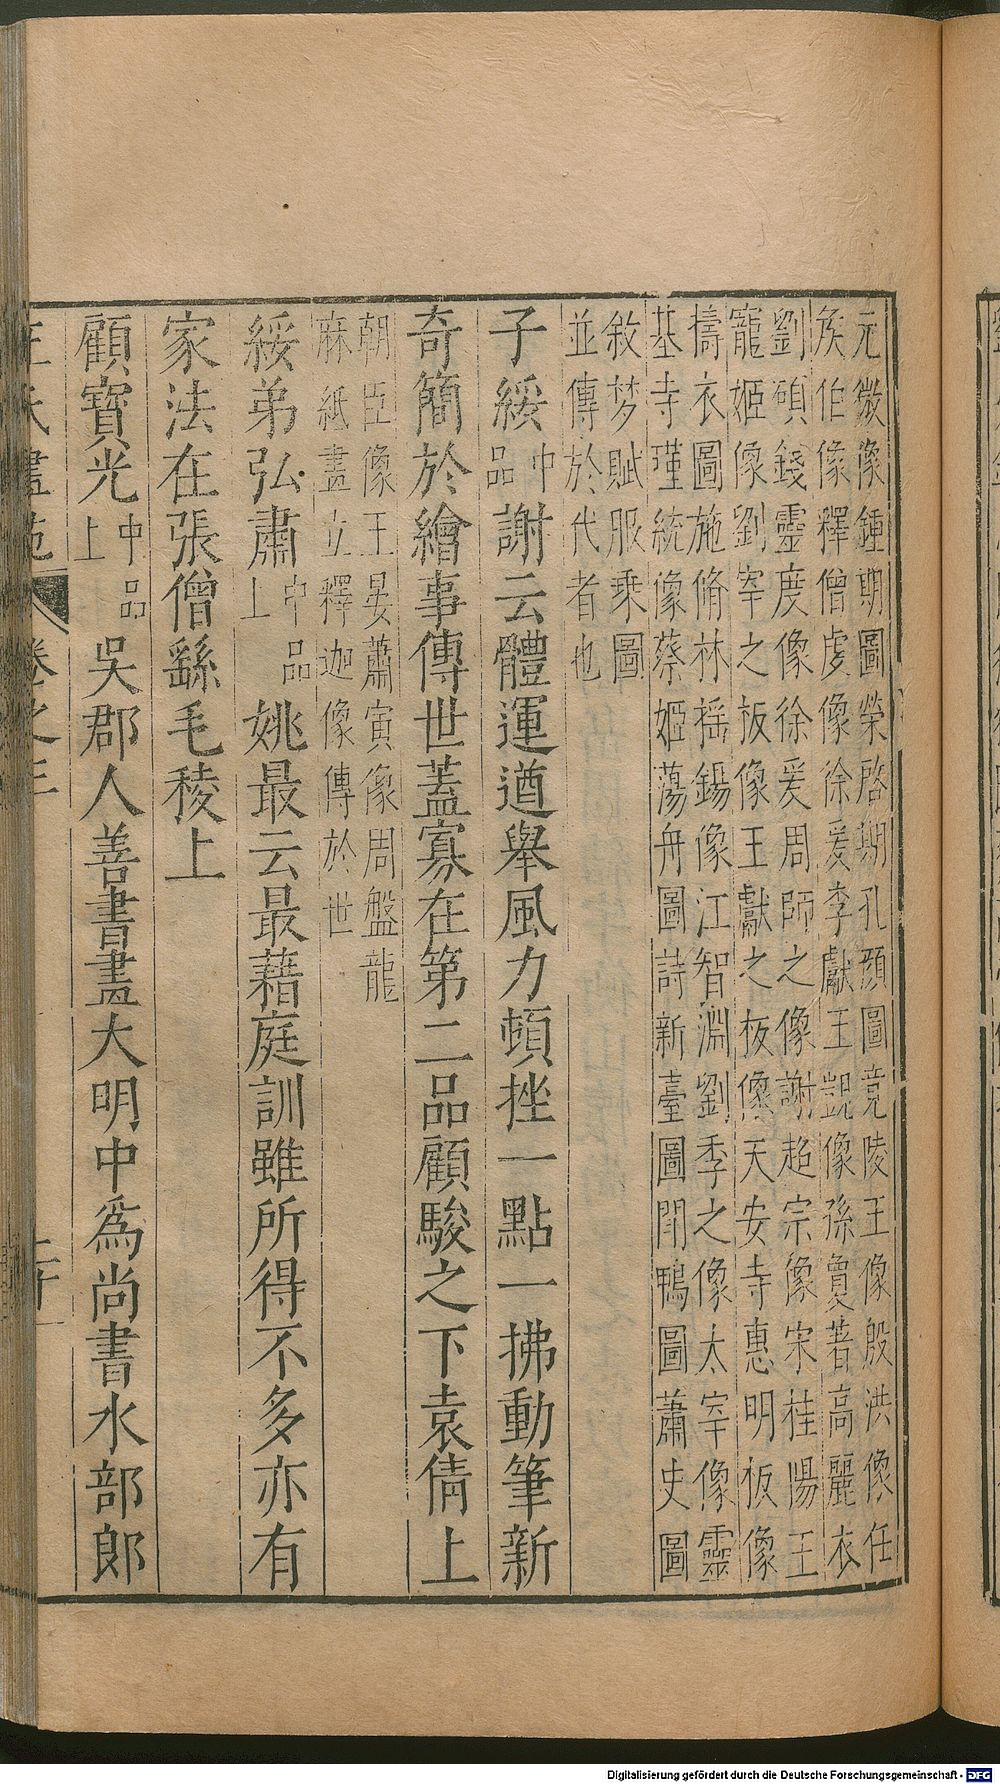 元徽像鍾期圖榮啓期孔顔圖竟陵王像殷洪像任
矦伯像釋僧虔像徐爰李獻王覬像孫賣著高麗衣
劉碩錢靈度像徐爰周師之像謝超宗像宋桂陽王
寵姬像劉宰之板像王獻之板像天安寺惠明板像
擣衣圖施脩林揺錫像江智淵劉季之像太宰像靈
基寺瑾統像蔡姬蕩舟圖詩新臺圖鬥鴨圖蕭史圖
敘梦賦服乗圖
並傳於代者也
子綏中品謝云體運遒舉風力頓挫一點一拂動筆新
奇簡於繪事傳世蓋寡在第二品顧駿之下袁倩上
朝臣像王晏蕭寅像周盤龍
麻紙畫立釋迦像傳於世
綏弟弘肅中品上姚最云最藉庭訓雖所得不多亦有
家法在張僧繇毛稜上
顧寳光中品上吳郡人善書畫大明中爲尚書水部郎
王氏畫苑 卷之三 二十一
Digitalisierung gefördert durch die Deutsche Forschungsgemeinschaft - DFG